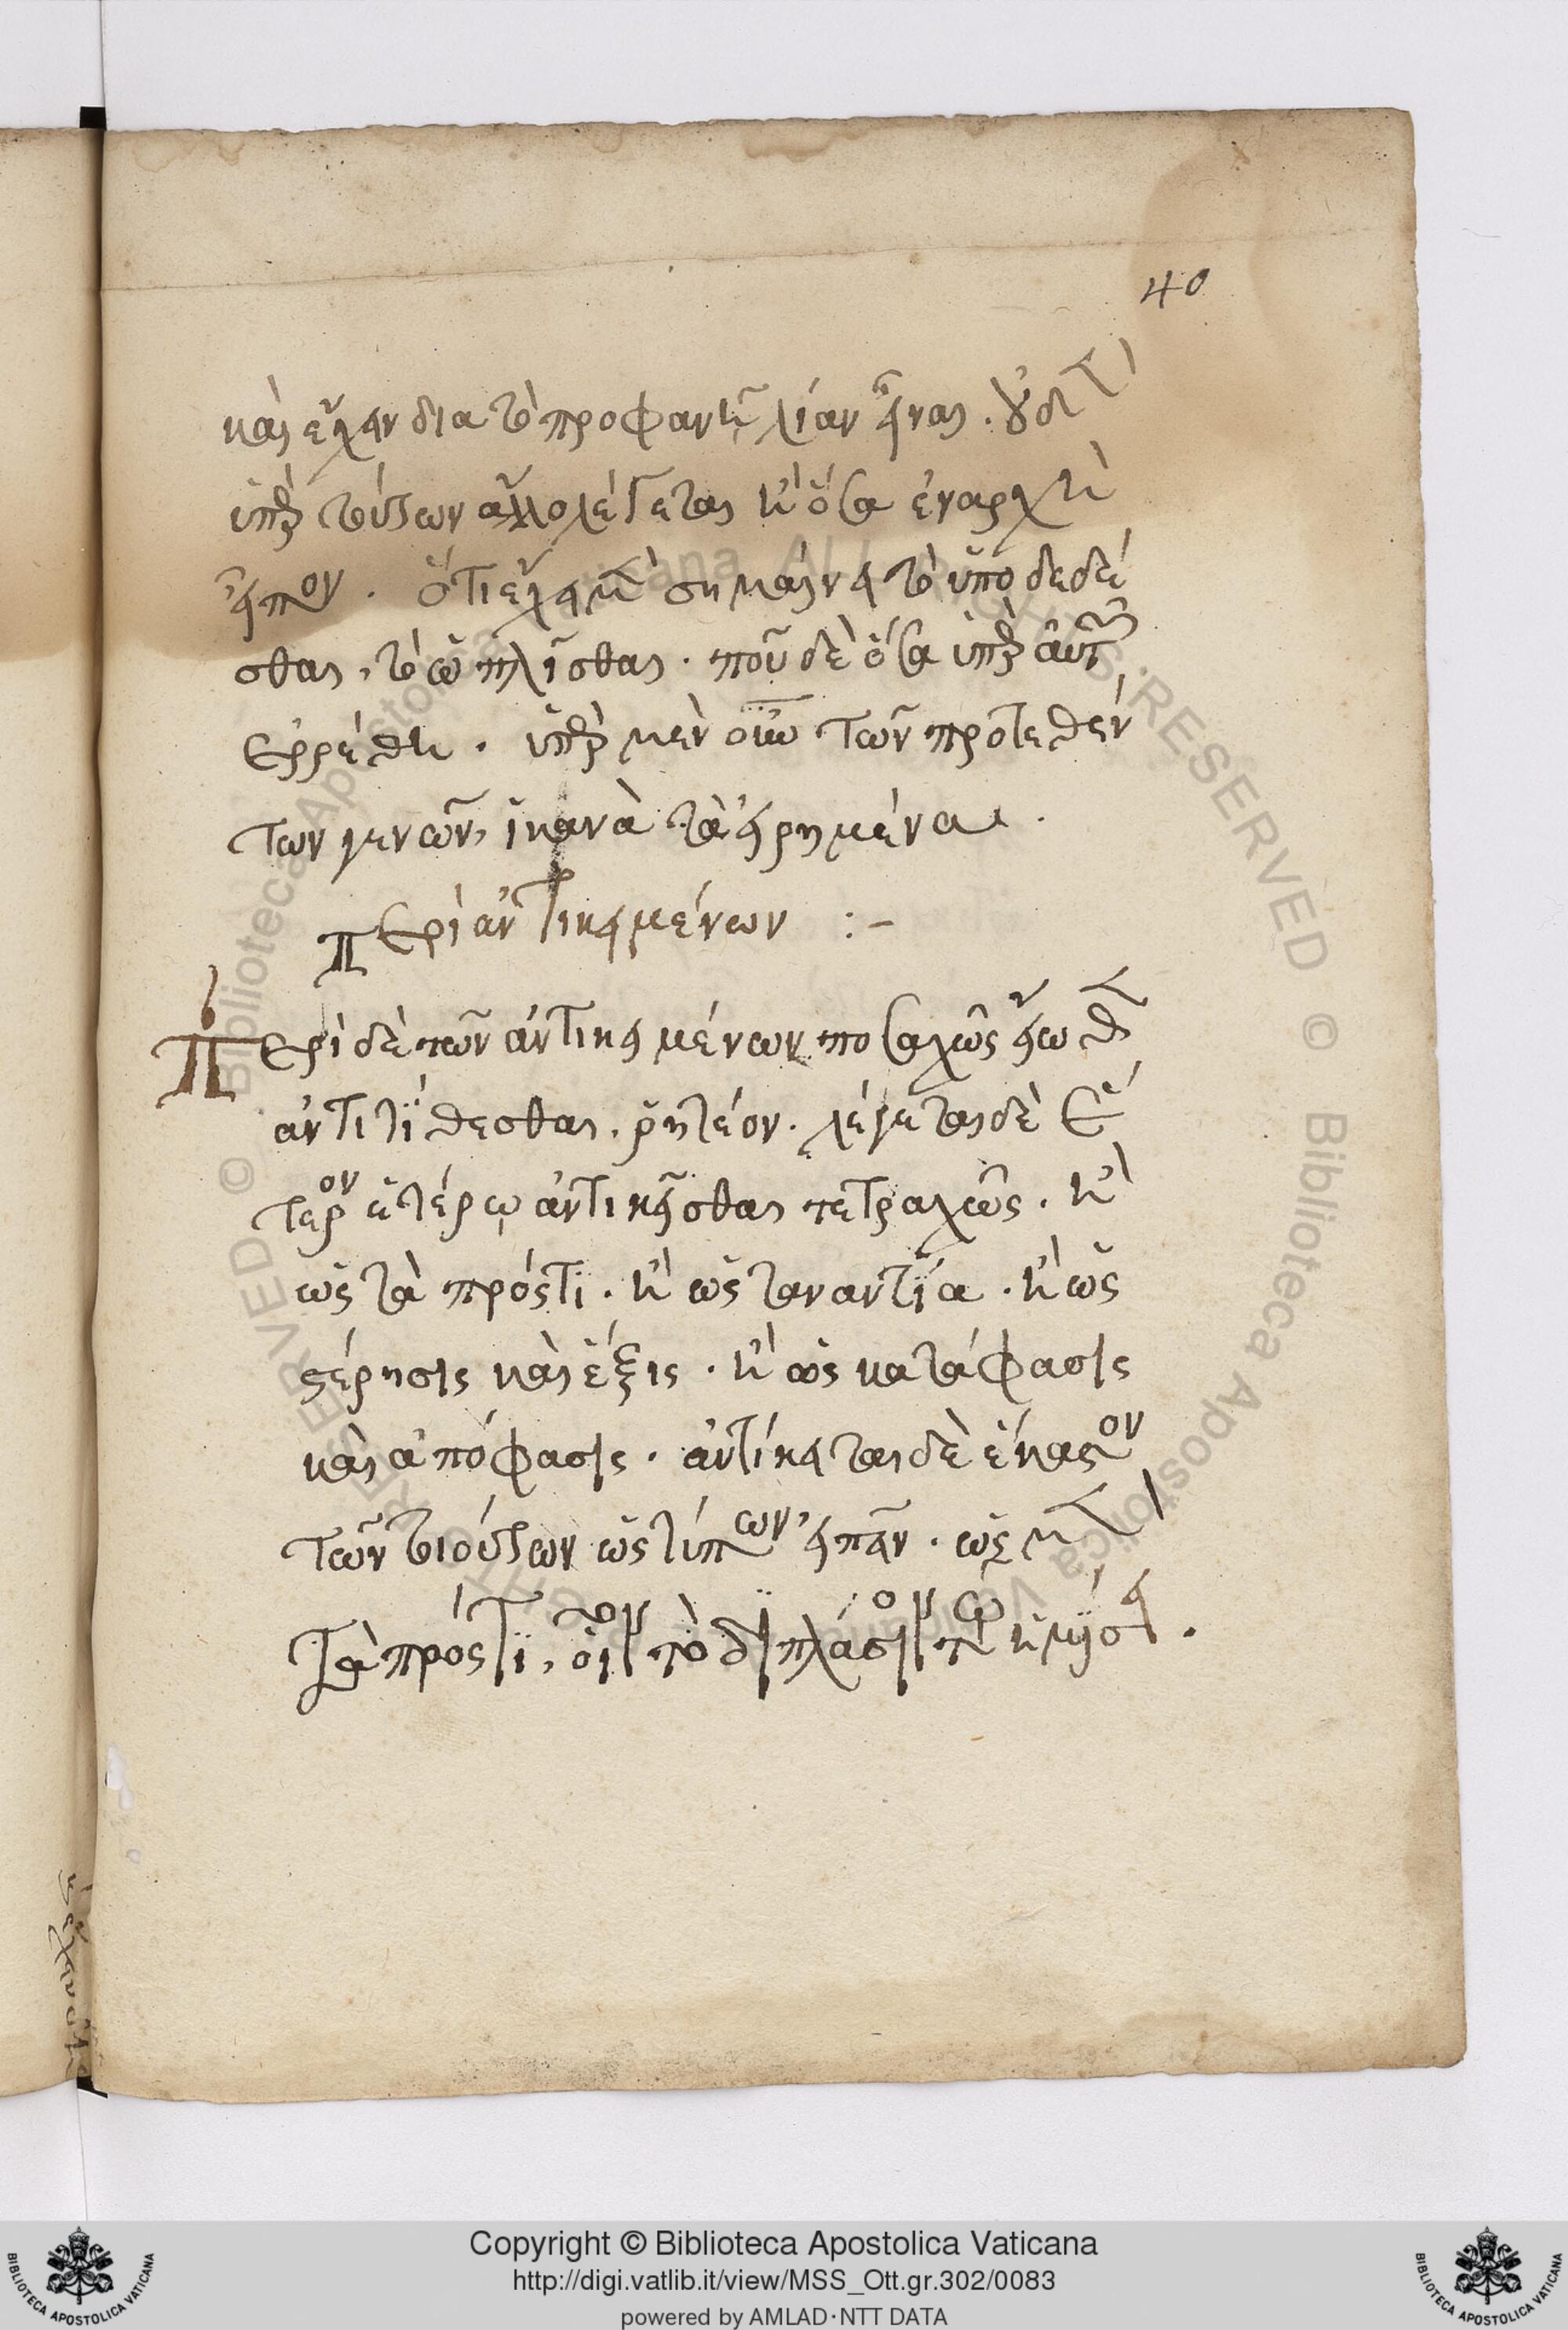 40
καὶ ἔχειν διὰ τὸ προφανῆ λίαν εἶναι. οὐδὲν
ὑπὲρ τούτων ἄλλο λέγεται ἢ ὅσα ἐν ἀρχῇ
εἶπον. ὅτι ἔχειν μὲν σημαίνει τὸ ὑποδεδέ
σθαι, τὸ ὡπλίσθαι. ποῦ δὲ ὅσα ὑπὲρ αὐτῶν
ἐρρέθη. ὑπὲρ μὲν οὖν τῶν προτεθέν
των γενῶν, ἱκανὰ τὰ εἰρημένα.
Περὶ ἀντικειμένων :-
Περὶ δὲ τῶν ἀντικειμένων ποσαχῶς εἴωθεν
ἀντιτίθεσθαι, ῥητέον. λέγεται δὲ ἕ
τερον ἑτέρῳ ἀντικεῖσθαι τετραχῶς. ἢ
ὡς τὰ πρός τι. ἢ ὡς τἀναντία. ἢ ὡς
στέρησις καὶ ἕξις. ἢ ὡς κατάφασις
καὶ ἀπόφασις. ἀντίκειται δὲ ἕκαστον
τῶν τοιούτων ὡς τύπῳ εἰπεῖν. ὡς μὲν
τὰ πρός τι, οἷον τὸ διπλάσιον τῷ ἡμίσει.
Copyright © Biblioteca Apostolica Vaticana
http://digi.vatlib.it/view/MSS_Ott.gr.302/0083
powered by AMLAD·NTT DATA